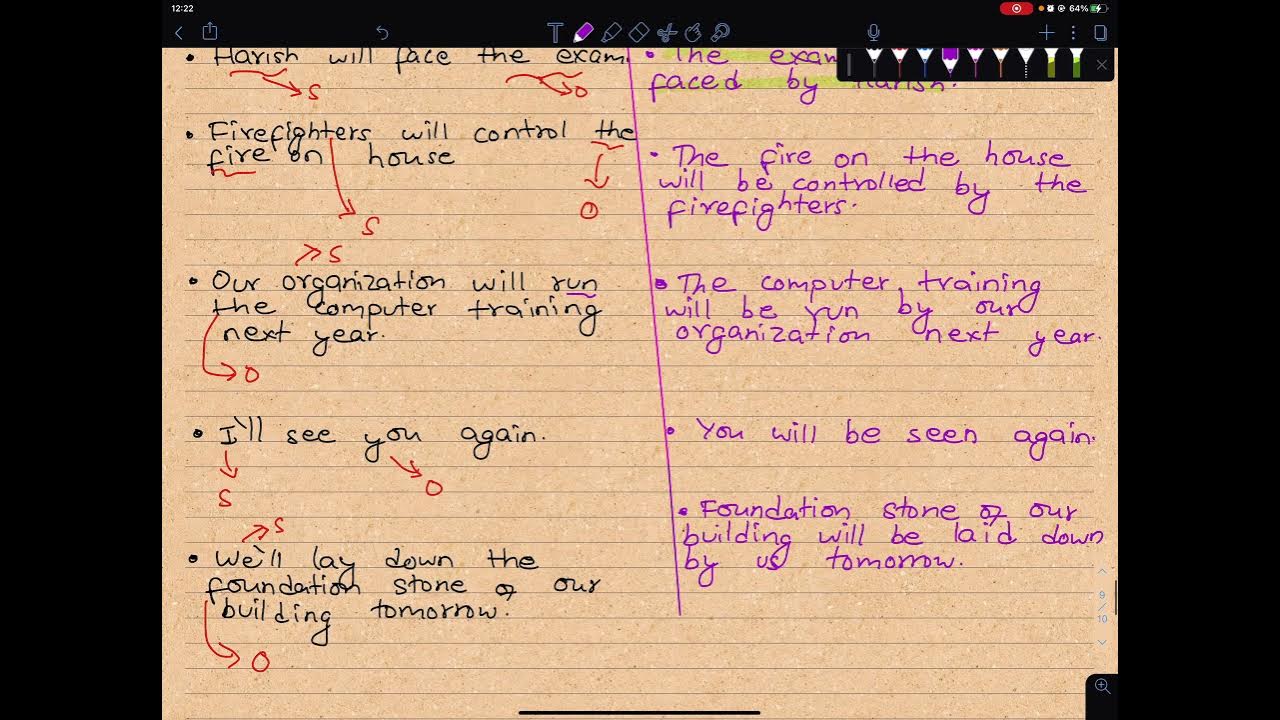 12:22
64%
T
• Harish will face the exam.
S
O
• Firefighters will control the
fire on house
O
S
S
• Our organization will run
the computer training
next year.
O
• I'll see you again.
S
O
S
• We'll lay down the
foundation stone of our
building tomorrow.
O
• The exam
faced by Harish.
• The fire on the house
will be controlled by the
firefighters.
• The computer training
will be run by our
organization next year.
• You will be seen again.
• Foundation stone of our
building will be laid down
by us tomorrow.
9
/
10